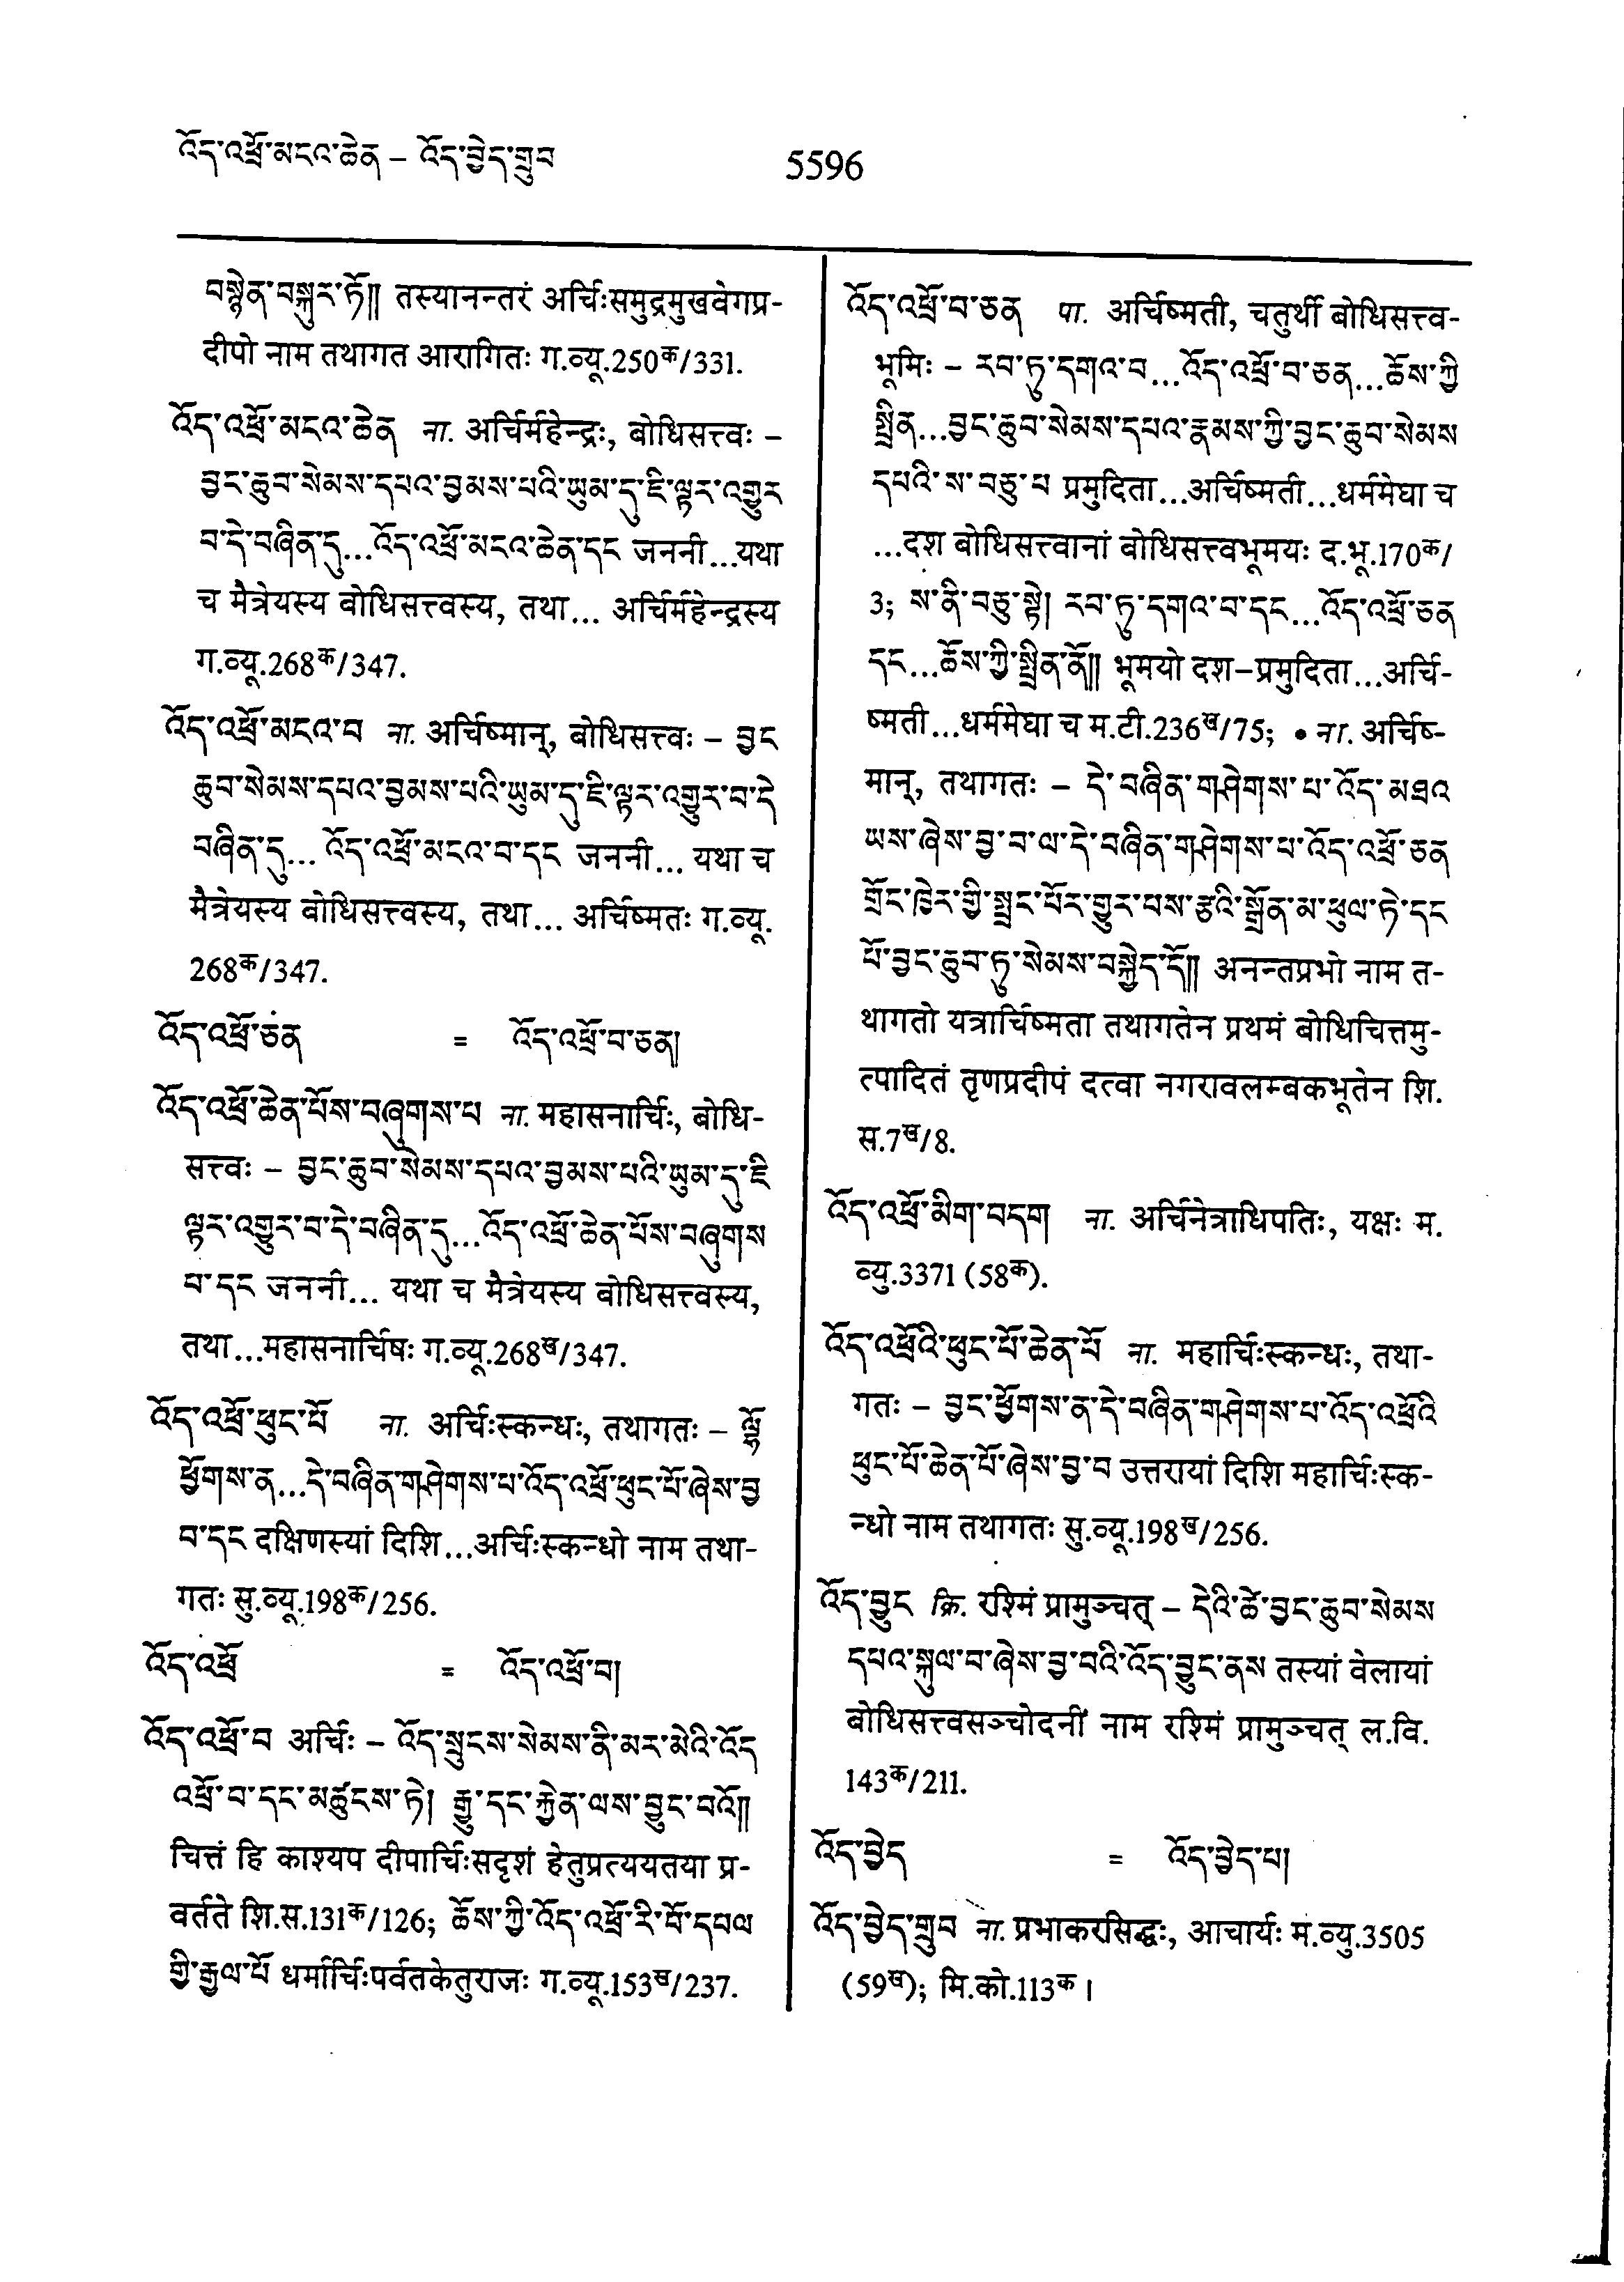 འོད་འཕྲོ་མངའ་ཆེན – འོད་བྱེད་གྲུབ
5596
བསྙེན་བསྐུར་ཏོ།། तस्यानन्तरं अर्चिःसमुद्रमुखवेगप्र-
दीपो नाम तथागत आरागितः ग.व्यू.250क/331.
འོད་འཕྲོ་མངའ་ཆེན ना. अर्चिर्महेन्द्रः, बोधिसत्त्वः –
བྱང་ཆུབ་སེམས་དཔའ་བྱམས་པའི་ཡུམ་དུ་ཇི་ལྟར་འགྱུར
བ་དེ་བཞིན་དུ...འོད་འཕྲོ་མངའ་ཆེན་དང जननी...यथा
च मैत्रेयस्य बोधिसत्त्वस्य, तथा... अर्चिर्महेन्द्रस्य
ग.व्यू.268क/347.
འོད་འཕྲོ་མངའ་བ ना. अर्चिष्मान्, बोधिसत्त्वः – བྱང
ཆུབ་སེམས་དཔའ་བྱམས་པའི་ཡུམ་དུ་ཇི་ལྟར་འགྱུར་བ་དེ
བཞིན་དུ... འོད་འཕྲོ་མངའ་བ་དང जननी... यथा च
मैत्रेयस्य बोधिसत्त्वस्य, तथा... अर्चिष्मतः ग.व्यू.
268क/347.
འོད་འཕྲོ་ཅན = འོད་འཕྲོ་བ་ཅན།
འོད་འཕྲོ་ཆེན་པོས་བཞུགས་པ ना. महासनार्चिः, बोधि-
सत्त्वः – བྱང་ཆུབ་སེམས་དཔའ་བྱམས་པའི་ཡུམ་དུ་ཇི
ལྟར་འགྱུར་བ་དེ་བཞིན་དུ...འོད་འཕྲོ་ཆེན་པོས་བཞུགས
པ་དང जननी... यथा च मैत्रेयस्य बोधिसत्त्वस्य,
तथा...महासनार्चिषः ग.व्यू.268ख/347.
འོད་འཕྲོ་ཕུང་པོ ना. अर्चिःस्कन्धः, तथागतः – ལྷོ
ཕྱོགས་ན...དེ་བཞིན་གཤེགས་པ་འོད་འཕྲོ་ཕུང་པོ་ཞེས་བྱ
བ་དང दक्षिणस्यां दिशि...अर्चिःस्कन्धो नाम तथा-
गतः सु.व्यू.198क/256.
འོད་འཕྲོ = འོད་འཕྲོ་བ།
འོད་འཕྲོ་བ अर्चिः – འོད་སྲུངས་སེམས་ནི་མར་མེའི་འོད
འཕྲོ་བ་དང་མཚུངས་ཏེ། རྒྱུ་དང་རྐྱེན་ལས་བྱུང་བའོ།།
चित्तं हि काश्यप दीपार्चिःसदृशं हेतुप्रत्ययतया प्र-
वर्तते शि.स.131क/126; ཆོས་ཀྱི་འོད་འཕྲོ་རི་བོ་དཔལ
གྱི་རྒྱལ་པོ धर्मार्चिःपर्वतकेतुराजः ग.व्यू.153ख/237.
འོད་འཕྲོ་བ་ཅན पा. अर्चिष्मती, चतुर्थी बोधिसत्त्व-
भूमिः – རབ་ཏུ་དགའ་བ...འོད་འཕྲོ་བ་ཅན...ཆོས་ཀྱི
སྤྲིན...བྱང་ཆུབ་སེམས་དཔའ་རྣམས་ཀྱི་བྱང་ཆུབ་སེམས
དཔའི་ས་བཅུ་པ प्रमुदिता...अर्चिष्मती...धर्ममेघा च
...दश बोधिसत्त्वानां बोधिसत्त्वभूमयः द.भू.170क/
3; ས་ནི་བཅུ་སྟེ། རབ་ཏུ་དགའ་བ་དང...འོད་འཕྲོ་ཅན
དང...ཆོས་ཀྱི་སྤྲིན་ནོ།། भूमयो दश–प्रमुदिता...अर्चि-
ष्मती...धर्ममेघा च म.टी.236ख/75; • ना. अर्चिष्-
मान्, तथागतः – དེ་བཞིན་གཤེགས་པ་འོད་མཐའ
ཡས་ཞེས་བྱ་བ་ལ་དེ་བཞིན་གཤེགས་པ་འོད་འཕྲོ་ཅན
གྲོང་ཁྱེར་གྱི་སྤྲང་པོར་གྱུར་པས་རྩྭའི་སྒྲོན་མ་ཕུལ་ཏེ་དང
པོ་བྱང་ཆུབ་ཏུ་སེམས་བསྐྱེད་དོ།། अनन्तप्रभो नाम त-
थागतो यत्रार्चिष्मता तथागतेन प्रथमं बोधिचित्तमु-
त्पादितं तृणप्रदीपं दत्वा नगरावलम्बकभूतेन शि.
स.7ख/8.
འོད་འཕྲོ་མིག་བདག ना. अर्चिनेत्राधिपतिः, यक्षः म.
व्यु.3371 (58क).
འོད་འཕྲོའི་ཕུང་པོ་ཆེན་པོ ना. महार्चिःस्कन्धः, तथा-
गतः – བྱང་ཕྱོགས་ན་དེ་བཞིན་གཤེགས་པ་འོད་འཕྲོའི
ཕུང་པོ་ཆེན་པོ་ཞེས་བྱ་བ उत्तरायां दिशि महार्चिःस्क-
न्धो नाम तथागतः सु.व्यू.198ख/256.
འོད་བྱུང क्रि. रश्मिं प्रामुञ्चत् – དེའི་ཚེ་བྱང་ཆུབ་སེམས
དཔའ་སྐུལ་བ་ཞེས་བྱ་བའི་འོད་བྱུང་ནས तस्यां वेलायां
बोधिसत्त्वसञ्चोदनीं नाम रश्मिं प्रामुञ्चत् ल.वि.
143क/211.
འོད་བྱེད = འོད་བྱེད་པ།
འོད་བྱེད་གྲུབ ना. प्रभाकरसिद्धः, आचार्यः म.व्यु.3505
(59ख); मि.को.113क।